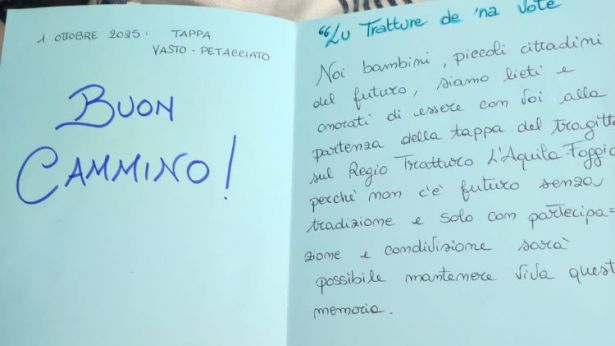 1 OTTOBRE 2025: TAPPA
VASTO - PETACCIATO
BUON
CAMMINO!
"Lu Tratture de 'na Vote
Noi bambini, piccoli cittadini
del futuro, siamo lieti e
onorati di essere con voi alla
partenza della tappa del tragitto
sul Regio Tratturo L'Aquila Foggia
perché non c'è futuro senza
tradizione e solo con partecipa=
zione e condivisione sarà
possibile mantenere viva quest
memoria.